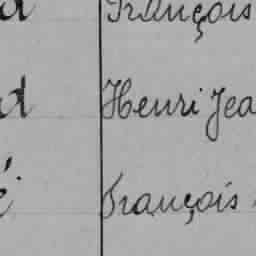 d François
d Henri Jea
é François